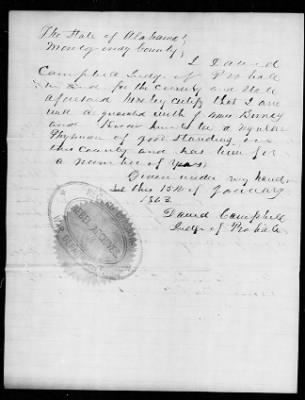 The State of Alabama}
Montgomery County}
I David
Campbell Judge of Probate
in and for the County and State
aforesaid hereby certify that I am
well acquainted with James Berney
and know him to be a regular
Physician of good standing in
this County and has been for
a number of years
Given under my hand
this 15th of January
1863
David Campbell
Judge of Probate